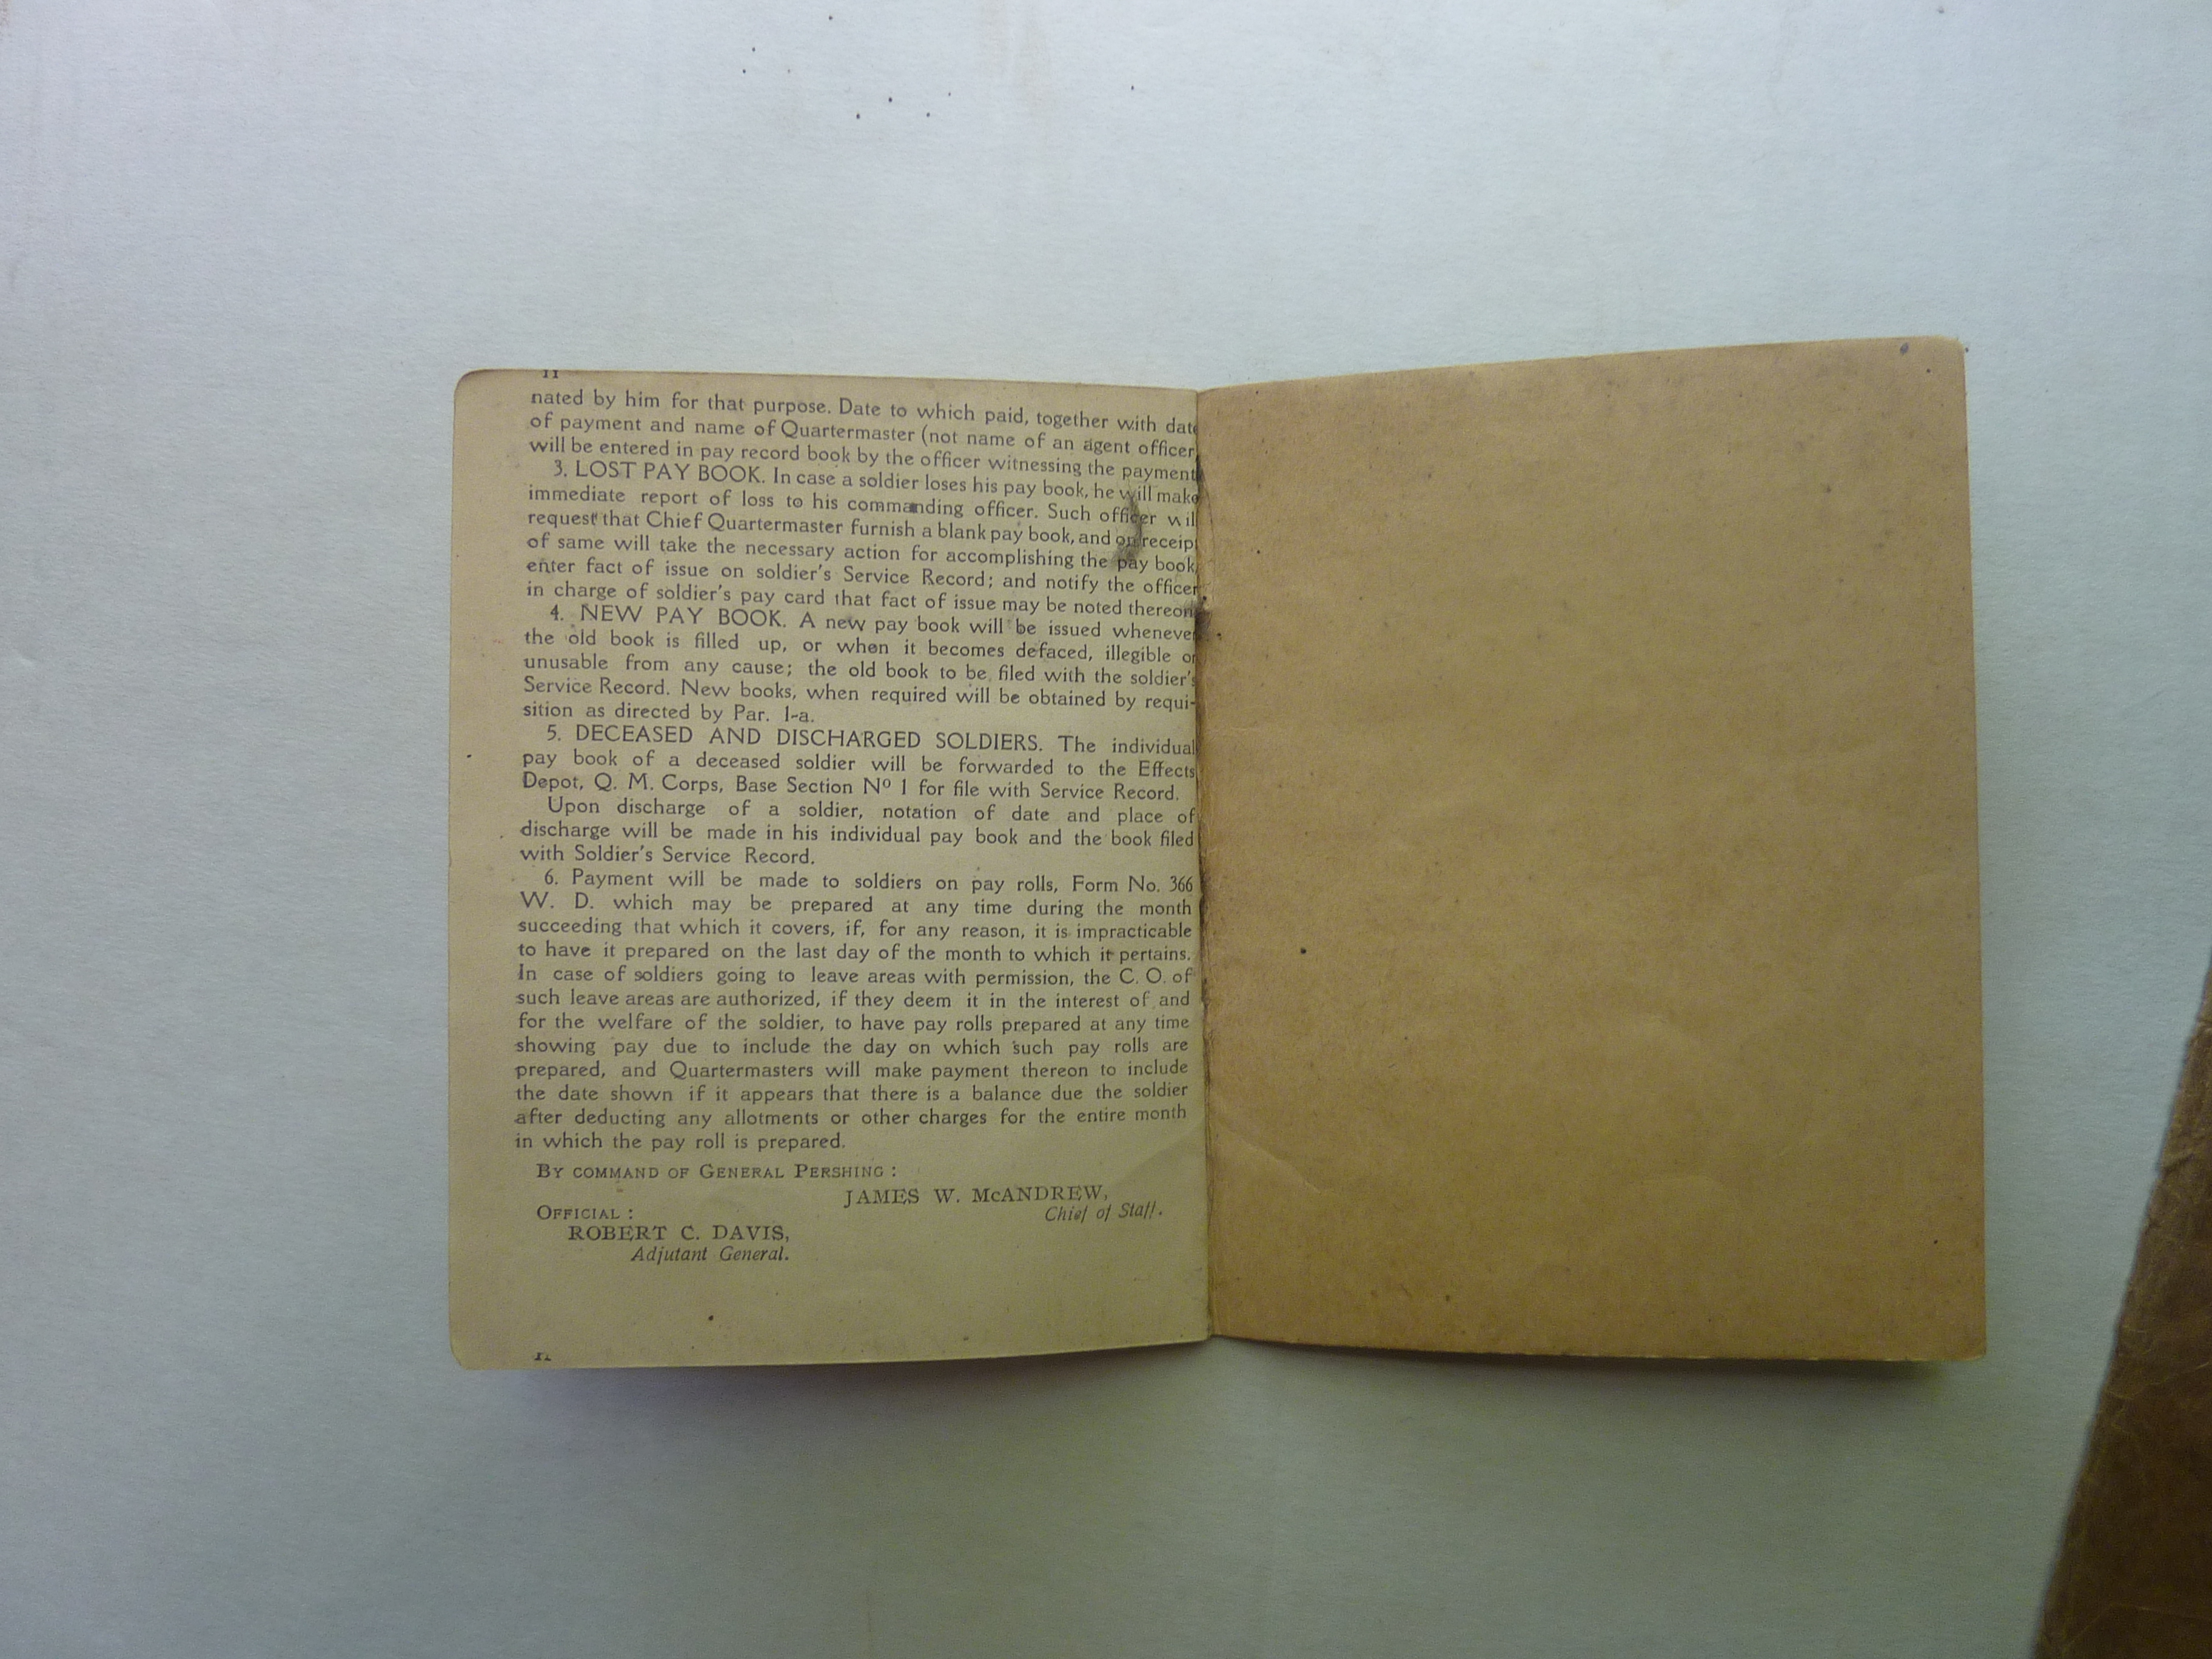 11
nated by him for that purpose. Date to which paid, together with date
of payment and name of Quartermaster (not name of an agent officer
will be entered in pay record book by the officer witnessing the payment
3. LOST PAY BOOK. In case a soldier loses his pay book, he will make
immediate report of loss to his commanding officer. Such officer wil
request that Chief Quartermaster furnish a blank pay book, and on receip
of same will take the necessary action for accomplishing the pay book
enter fact of issue on soldier's Service Record; and notify the officer
in charge of soldier's pay card that fact of issue may be noted thereon
4. NEW PAY BOOK. A new pay book will be issued whenever
the old book is filled up, or when it becomes defaced, illegible or
unusable from any cause; the old book to be filed with the soldier's
Service Record. New books, when required will be obtained by requi-
sition as directed by Par. 1-a.
5. DECEASED AND DISCHARGED SOLDIERS. The individual
pay book of a deceased soldier will be forwarded to the Effects
Depot, Q. M. Corps, Base Section Nº 1 for file with Service Record.
Upon discharge of a soldier, notation of date and place of
discharge will be made in his individual pay book and the book filed
with Soldier's Service Record.
6. Payment will be made to soldiers on pay rolls, Form No. 366
W. D. which may be prepared at any time during the month
succeeding that which it covers, if, for any reason, it is impracticable
to have it prepared on the last day of the month to which it pertains.
In case of soldiers going to leave areas with permission, the C. O. of
such leave areas are authorized, if they deem it in the interest of and
for the welfare of the soldier, to have pay rolls prepared at any time
showing pay due to include the day on which such pay rolls are
prepared, and Quartermasters will make payment thereon to include
the date shown if it appears that there is a balance due the soldier
after deducting any allotments or other charges for the entire month
in which the pay roll is prepared.
BY COMMAND OF GENERAL PERSHING :
JAMES W. McANDREW,
Chief of Staff.
OFFICIAL :
ROBERT C. DAVIS,
Adjutant General.